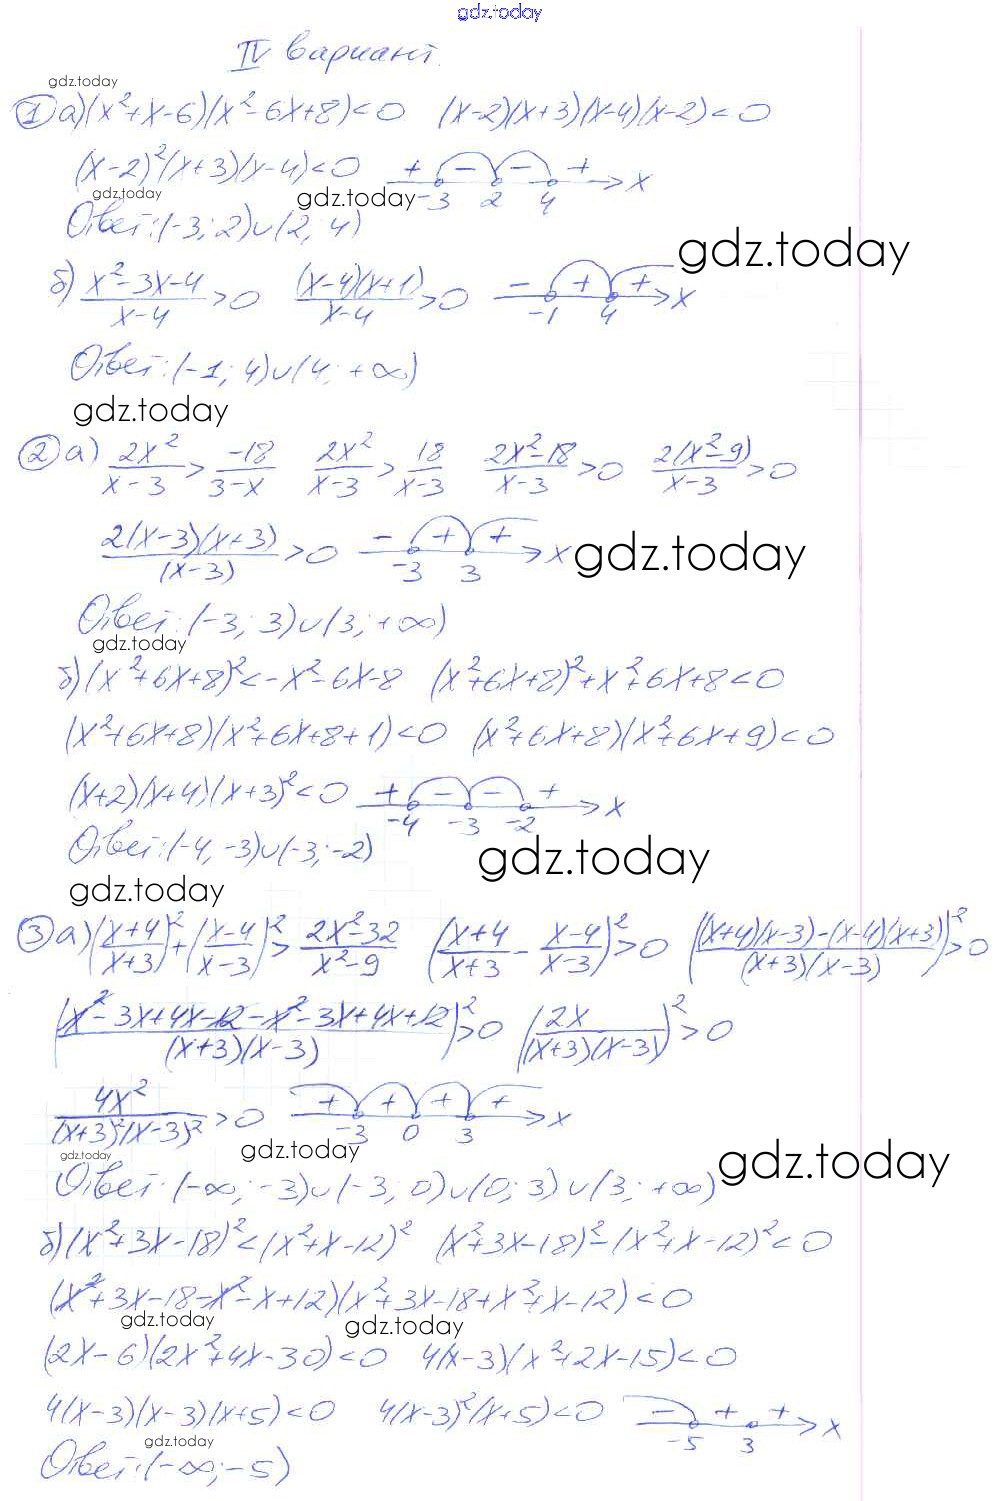 gdz.today
IV вариант.
gdz.today
① а) (x²+x-6)(x²-6x+8)<0 (x-2)(x+3)(x-4)(x-2)<0
(x-2)²(x+3)(x-4)<0 + - - + -3 2 4 x
gdz.today gdz.today
Ответ: (-3; 2)∪(2, 4)
gdz.today
б) (x²-3x-4)/(x-4)>0 ((x-4)(x+1))/(x-4)>0 - + + -1 4 x
Ответ: (-1; 4)∪(4; +∞)
gdz.today
② а) 2x²/(x-3)>-18/(3-x) 2x²/(x-3)>18/(x-3) (2x²-18)/(x-3)>0 2(x²-9)/(x-3)>0
2(x-3)(x+3)/(x-3)>0 - + + -3 3 x
gdz.today
Ответ: (-3; 3)∪(3; +∞)
gdz.today
б) (x²+6x+8)²<-x²-6x-8 (x²+6x+8)²+x²+6x+8<0
(x²+6x+8)(x²+6x+8+1)<0 (x²+6x+8)(x²+6x+9)<0
(x+2)(x+4)(x+3)²<0 + - - + -4 -3 -2 x
Ответ: (-4, -3)∪(-3; -2)
gdz.today
gdz.today
③ а) ((x+4)/(x+3))²+((x-4)/(x-3))²>(2x²-32)/(x²-9) ((x+4)/(x+3)-(x-4)/(x-3))²>0 (((x+4)(x-3)-(x-4)(x+3))/((x+3)(x-3)))²>0
((x²-3x+4x-12-x²-3x+4x+12)/((x+3)(x-3)))²>0 (2x/((x+3)(x-3)))²>0
4x²/((x+3)²(x-3)²)>0 + + + + -3 0 3 x
gdz.today gdz.today gdz.today
Ответ: (-∞; -3)∪(-3; 0)∪(0; 3)∪(3; +∞)
б) (x²+3x-18)²<(x²+x-12)² (x²+3x-18)²-(x²+x-12)²<0
(x²+3x-18-x²-x+12)(x²+3x-18+x²+x-12)<0
gdz.today gdz.today
(2x-6)(2x²+4x-30)<0 4(x-3)(x²+2x-15)<0
4(x-3)(x-3)(x+5)<0 4(x-3)²(x+5)<0 - + + -5 3 x
gdz.today
Ответ: (-∞; -5)